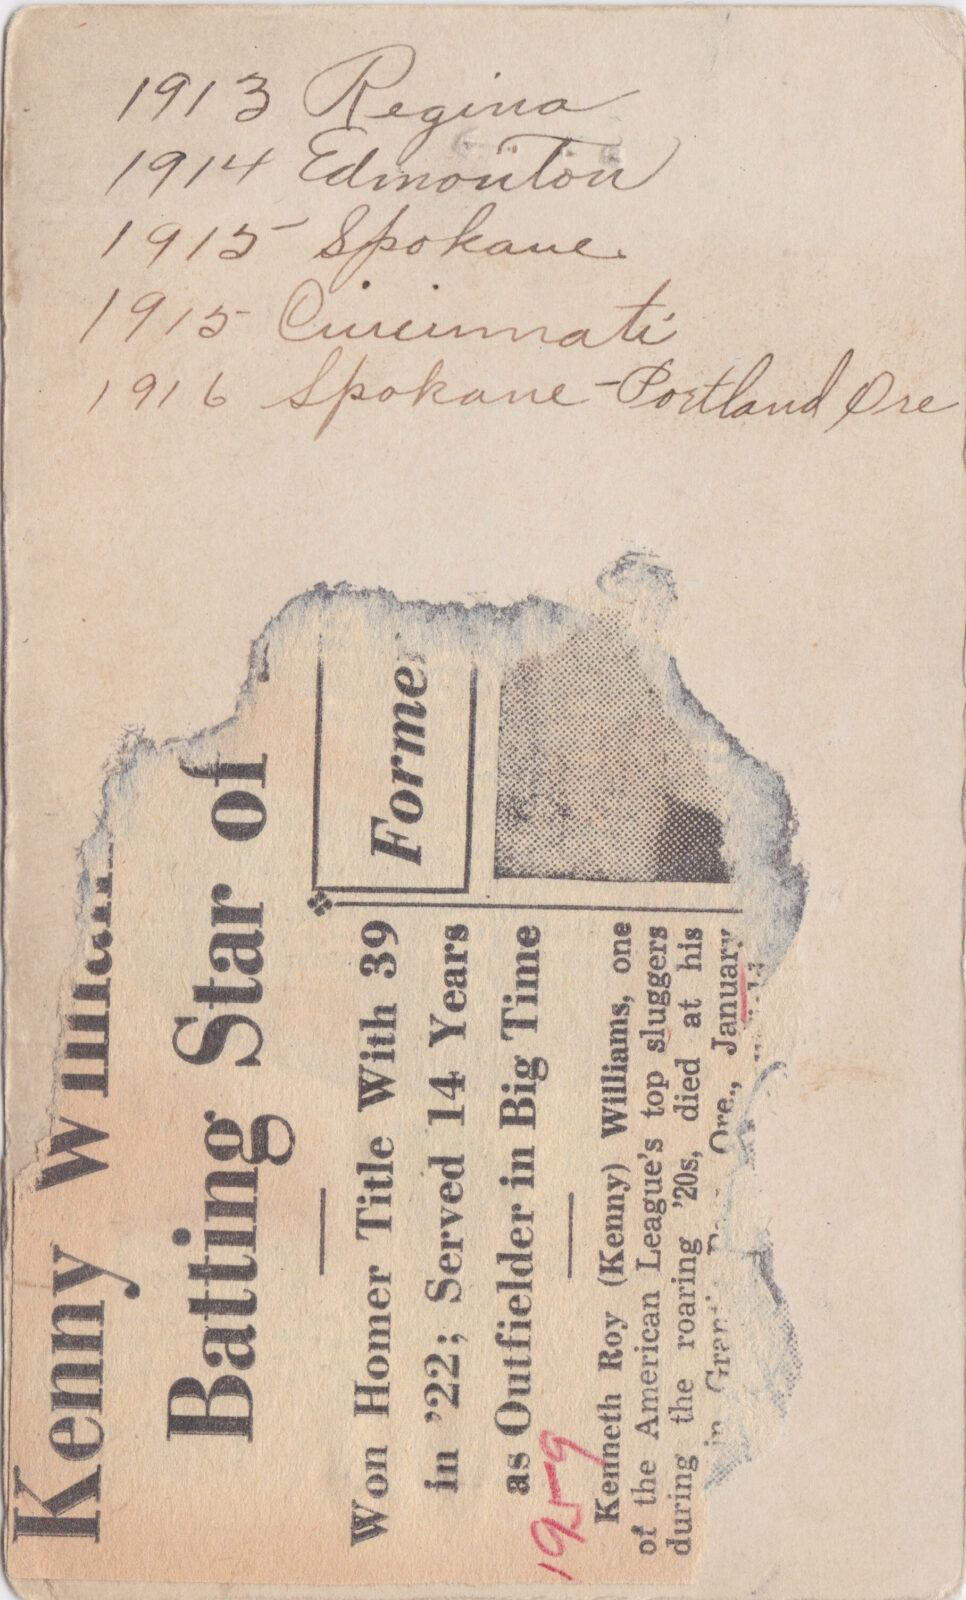 1913 Regina
1914 Edmonton
1915 Spokane
1915 Cincinnati
1916 Spokane - Portland Ore
Kenny
Batting Star of
Won Homer Title With 39
in '22; Served 14 Years
as Outfielder in Big Time
Forme
1959
Kenneth Roy (Kenny) Williams, one
of the American League's top sluggers
during the roaring '20s, died at his
in Ore., January